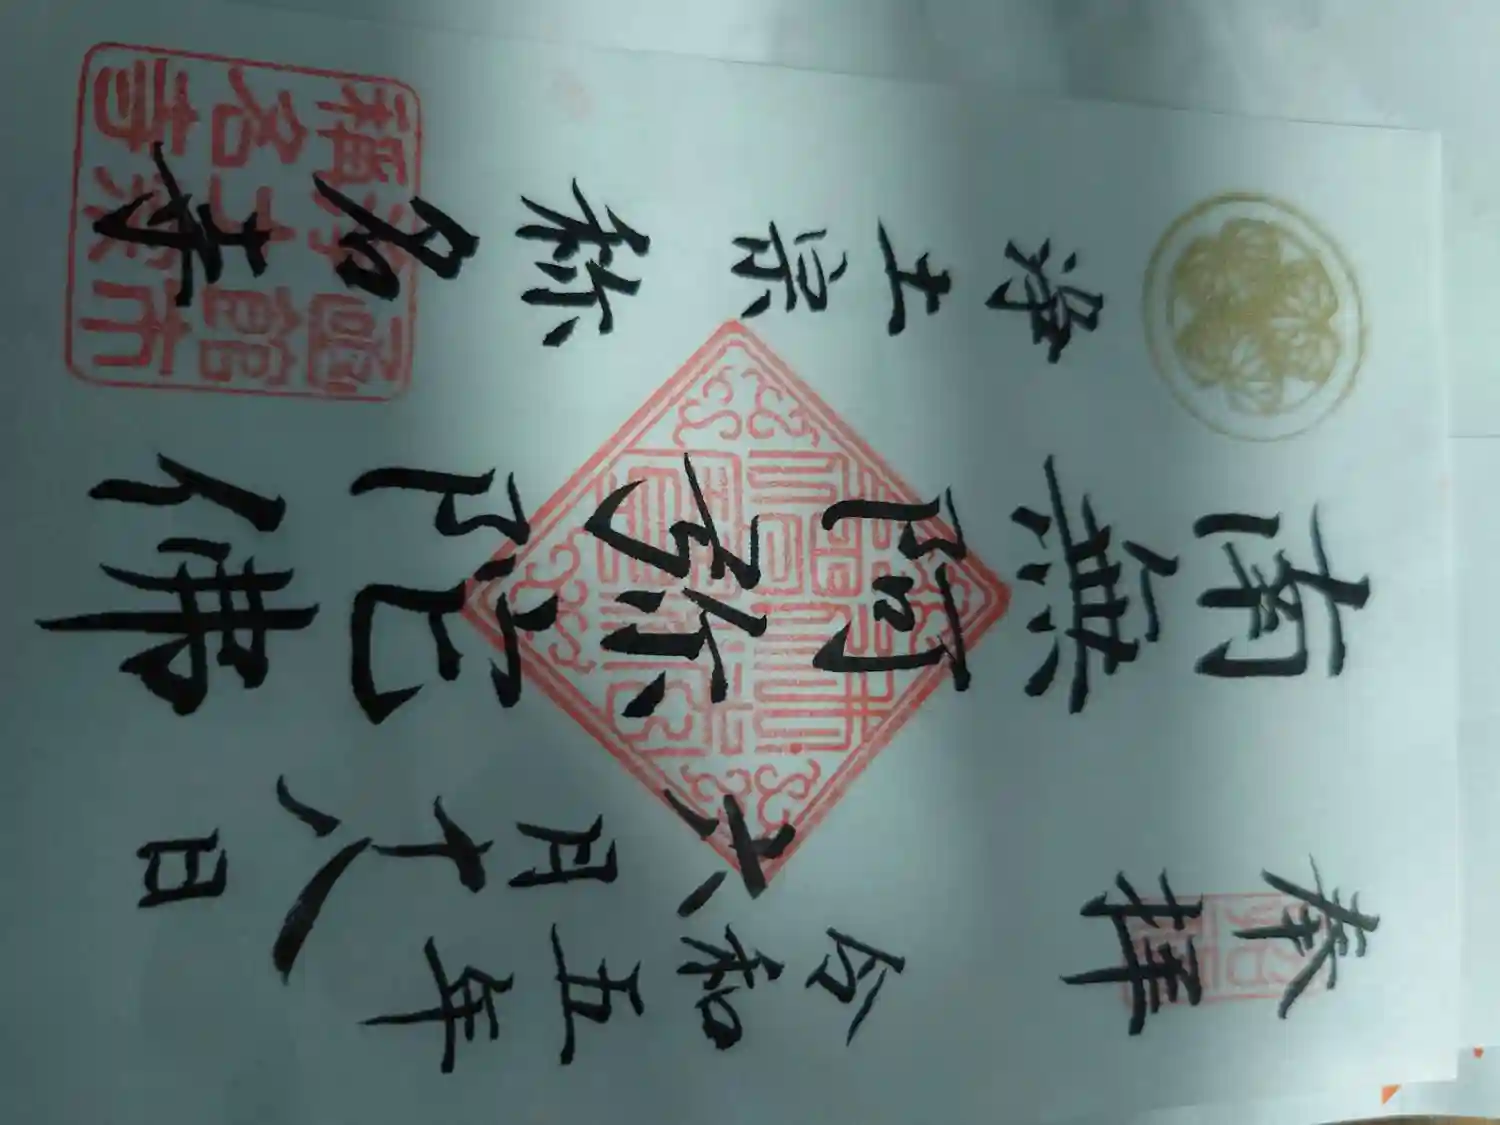 奉拝
令和五年
六月十八日
南無阿弥陀佛
浄土宗
称名寺
函館市
浄土宗
稱名寺